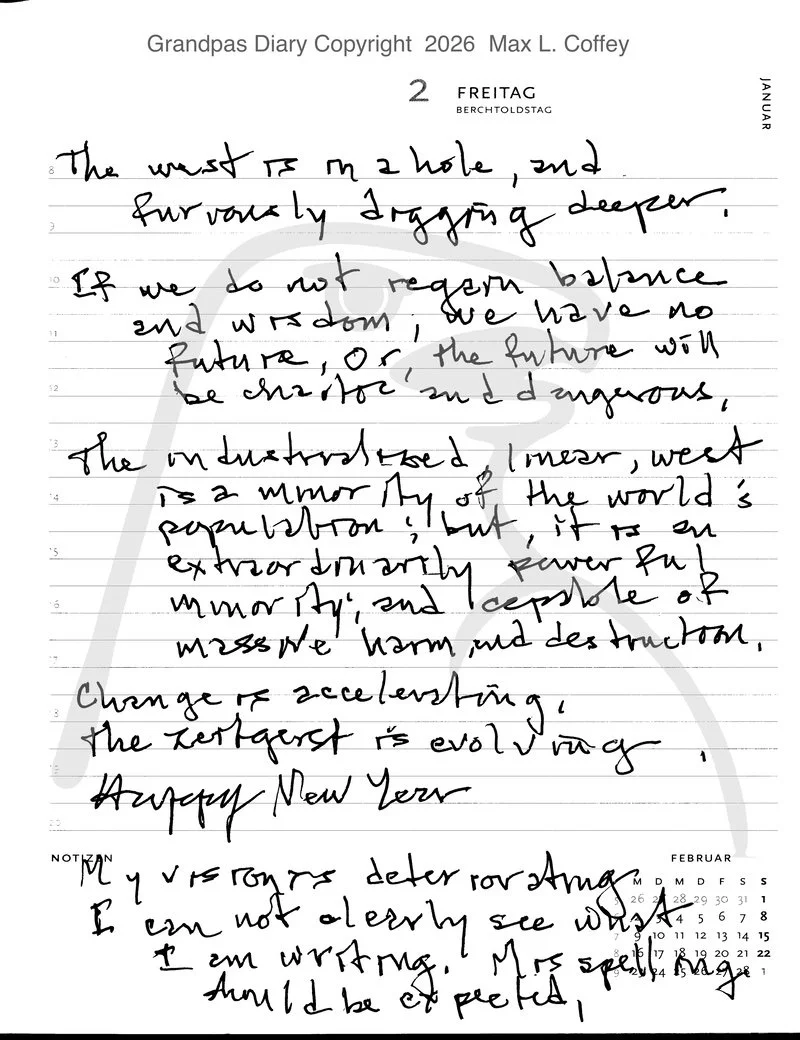 Grandpas Diary Copyright 2026 Max L. Coffey
2 FREITAG
BERCHTOLDSTAG
JANUAR
The west is in a hole, and
furiously digging deeper.
If we do not regain balance
and wisdom, we have no
future, Or, the future will
be chaotic and dangerous.
The industrialized, linear, west
is a minority of the world's
population; but, it is an
extraordinarily powerful
minority, and capable of
massive harm and destruction.
Change is accelerating,
the zeitgeist is evolving.
Happy New Year
NOTIZEN
My vision is deteriorating
I can not clearly see what
I am writing. Misspellings
should be expected,
FEBRUAR
M D M D F S S
5 26 27 28 29 30 31 1
3 4 5 6 7 8
7 9 10 11 12 13 14 15
8 16 17 18 19 20 21 22
9 23 24 25 26 27 28 1